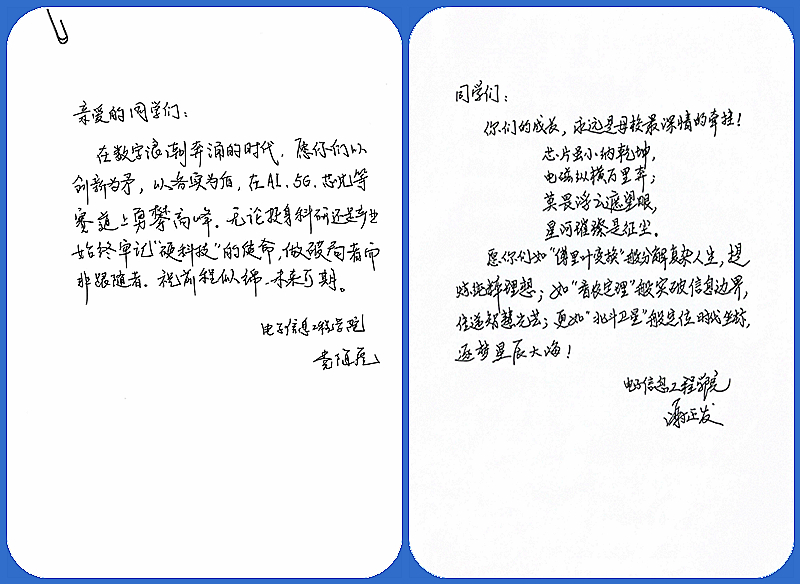 亲爱的同学们：
在数字浪潮奔涌的时代，愿你们以
创新为矛，以务实为盾，在AI、5G、芯片等
赛道上勇攀高峰。无论投身科研还是产业
始终牢记“硬科技”的使命，做破局者而
非跟随者。祝前程似锦，未来可期。
电子信息工程学院
同学们：
你们的成长，永远是母校最深情的牵挂！
芯片虽小纳乾坤，
电磁纵横万里奔；
莫畏浮云遮望眼，
星河璀璨是征尘。
愿你们如“傅里叶变换”般分解复杂人生，提
炼纯粹理想；如“香农定理”般突破信息边界，
传递智慧光芒；更如“北斗卫星”般定位时代坐标，
逐梦星辰大海！
电子信息工程学院
正发